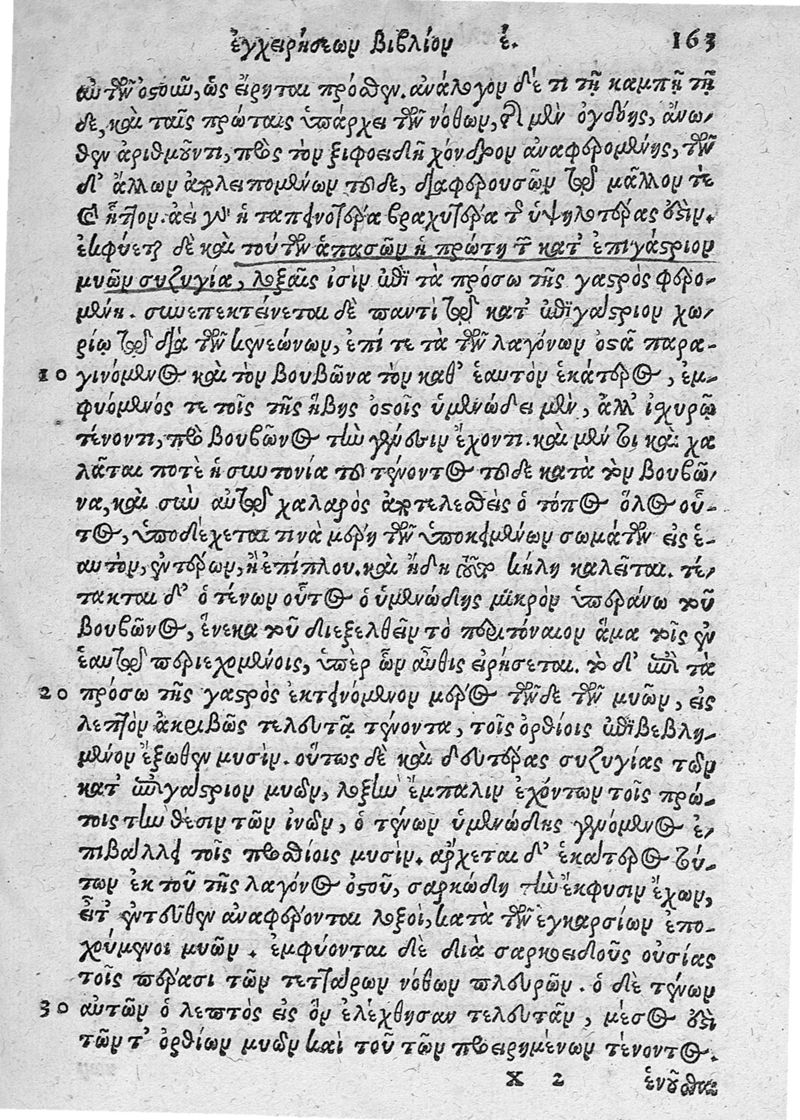 ἐγχειρήσεων Βιβλίον έ. 163
αὐτῶν ὀστοῦν, ὡς εἴρηται πρόσθεν. ἀνάλογον δέ τι τῇ καμπῇ τῇ
δε, καὶ ταῖς πρώταις ὑπάρχει τῶν νόθων, μὲν ὀγδόης, ἄνω/
θεν ἀριθμοῦντι, πρὸς τὸν ξιφοειδῆ χόνδρον ἀναφερομένης, τῶν
δ' ἄλλων ἀπλειπομένων τοῦδε, διαφερουσῶν τῷ μᾶλλόν τε
καὶ ἧττον. ἀεὶ γὰρ ἡ ταπεινοτέρα βραχυτέρα τῆς ὑψηλοτέρας ἐστίν.
ἐκφύεται δὲ καὶ τούτων ἁπασῶν ἡ πρώτη τῶν κατ' ἐπιγάστριον
μυῶν συζυγία, λοξαῖς ἰσὶν ἐπὶ τὰ πρόσω τῆς γαστρὸς φερο-
μένη. συνεπεκτείνεται δὲ παντὶ τῷ κατ' ἐπιγάστριον χω/
ρίῳ τῷ διὰ τῶν κενεώνων, ἐπί τε τὰ τῶν λαγόνων ὀστᾶ παρα-
10 γινόμενος καὶ τὸν βουβῶνα τὸν καθ' ἑαυτὸν ἑκάτερος, ἐμ-
φυόμενός τε τοῖς τῆς ἥβης ὀστοῖς ὑμενώδει μὲν, ἀλλ' ἰχυρῷ
τένοντι, πρὸ βουβῶνος τὴν γένεσιν ἔχοντι. καὶ μέν τι καὶ χα
λᾶται ποτὲ ἡ συντονία τοῦ τένοντος τοῦδε κατὰ τὸν βουβῶ/
να, καὶ σὺν αὐτῷ χαλαρὸς ἀποτελεσθεὶς ὁ τόπος ὅλος οὗ-
τος, ὑποδέχεται τινὰ μέρη τῶν ὑποκειμένων σωμάτων εἰς ἑ-
αυτὸν, ἐντέρων, ἢ ἐπίπλου. καὶ ἤδη κήλη καλεῖται. τέ/
τακται δ' ὁ τένων οὗτος ὁ ὑμενώδης μικρὸν ὑπεράνω τοῦ
βουβῶνος, ἕνεκα τοῦ διεξελθεῖν τὸ περιτόναιον ἅμα τοῖς ἐν
ἑαυτῷ περιεχομένοις, ὑπὲρ ὧν αὖθις εἰρήσεται. τὸ δ' ἐπὶ τὰ
20 πρόσω τῆς γαστρὸς ἐκτεινόμενον μέρος τῶνδε τῶν μυῶν, εἰς
λεπτὸν ἀκριβῶς τελευτᾷ τένοντα, τοῖς ὀρθίοις ἐπιβεβλη-
μένον ἔξωθεν μυσίν. οὕτως δὲ καὶ δευτέρας συζυγίας τῶν
κατ' ἐπιγάστριον μυῶν, λοξὴν ἔμπαλιν ἐχόντων τοῖς πρώ-
τοις τὴν θέσιν τῶν ἰνῶν, ὁ τένων ὑμενώδης γενόμενος ἐ/
πιβάλλει τοῖς προσθίοις μυσίν. ἄρχεται δ' ἑκάτερος τού-
των ἐκ τοῦ τῆς λαγόνος ὀστοῦ, σαρκώδη τὴν ἔκφυσιν ἔχων,
εἶτ' ἐντεῦθεν ἀναφέρονται λοξοὶ, κατὰ τῶν ἐγκαρσίων ἐπο-
χούμενοι μυῶν. ἐμφύονται δὲ διὰ σαρκοειδοῦς οὐσίας
τοῖς πέρασι τῶν τεττάρων νόθων πλευρῶν. ὁ δὲ τένων
30 αὐτῶν ὁ λεπτὸς εἰς ὃν ἐλέχθησαν τελευτᾶν, μέσος ἐστὶ
τῶν τ' ὀρθίων μυῶν καὶ τοῦ τῶν προειρημένων τένοντος.
X 2 ἑνοῦσθαι